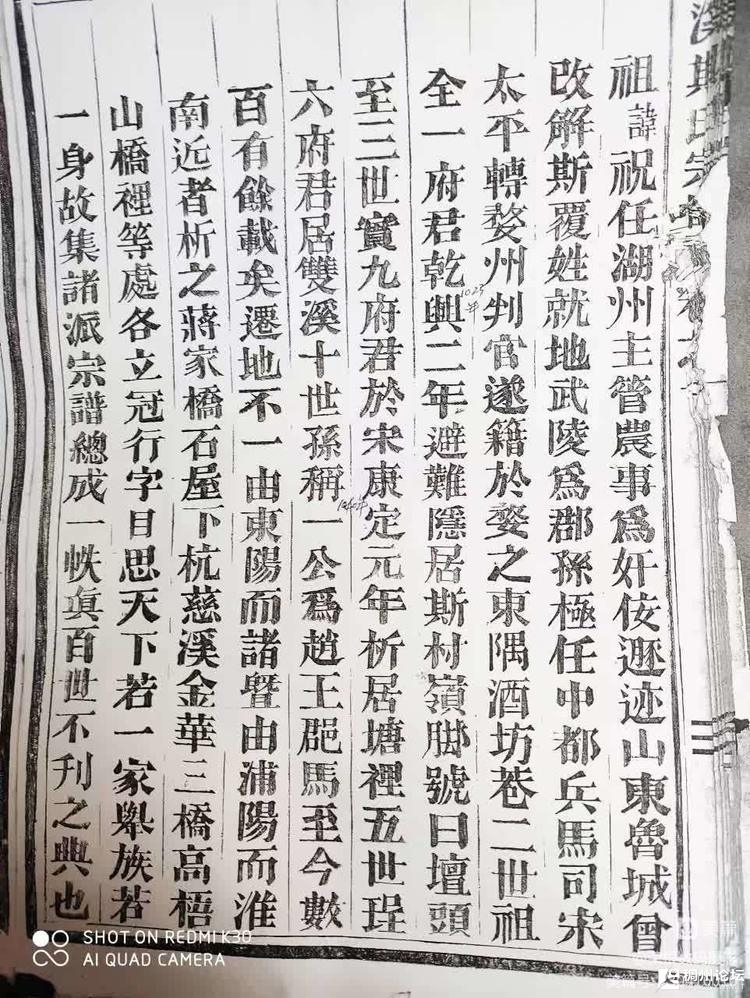 溪斯氏宗譜
祖諱祝任湖州主管農事爲奸佞遯迹山東魯城曾
改解斯覆姓就地武陵爲郡孫極任中都兵馬司宋
太平轉婺州判官遂籍於婺之東隅酒坊巷二世祖
全一府君乾興二年避難隱居斯村嶺脚號曰壇頭
1023年
至三世實九府君於宋康定元年析居塘裡五世珵
六府君居雙溪十世孫稱一公爲趙王郡馬至今數
百有餘載矣遷地不一由東陽而諸暨由浦陽而淮
南近者析之蔣家橋石屋下杭慈溪金華三橋高梧
山橋裡等處各立冠行字目思天下若一家舉族若
一身故集諸派宗譜總成一帙眞百世不刋之典也
SHOT ON REDMI K30
AI QUAD CAMERA
稠州论坛